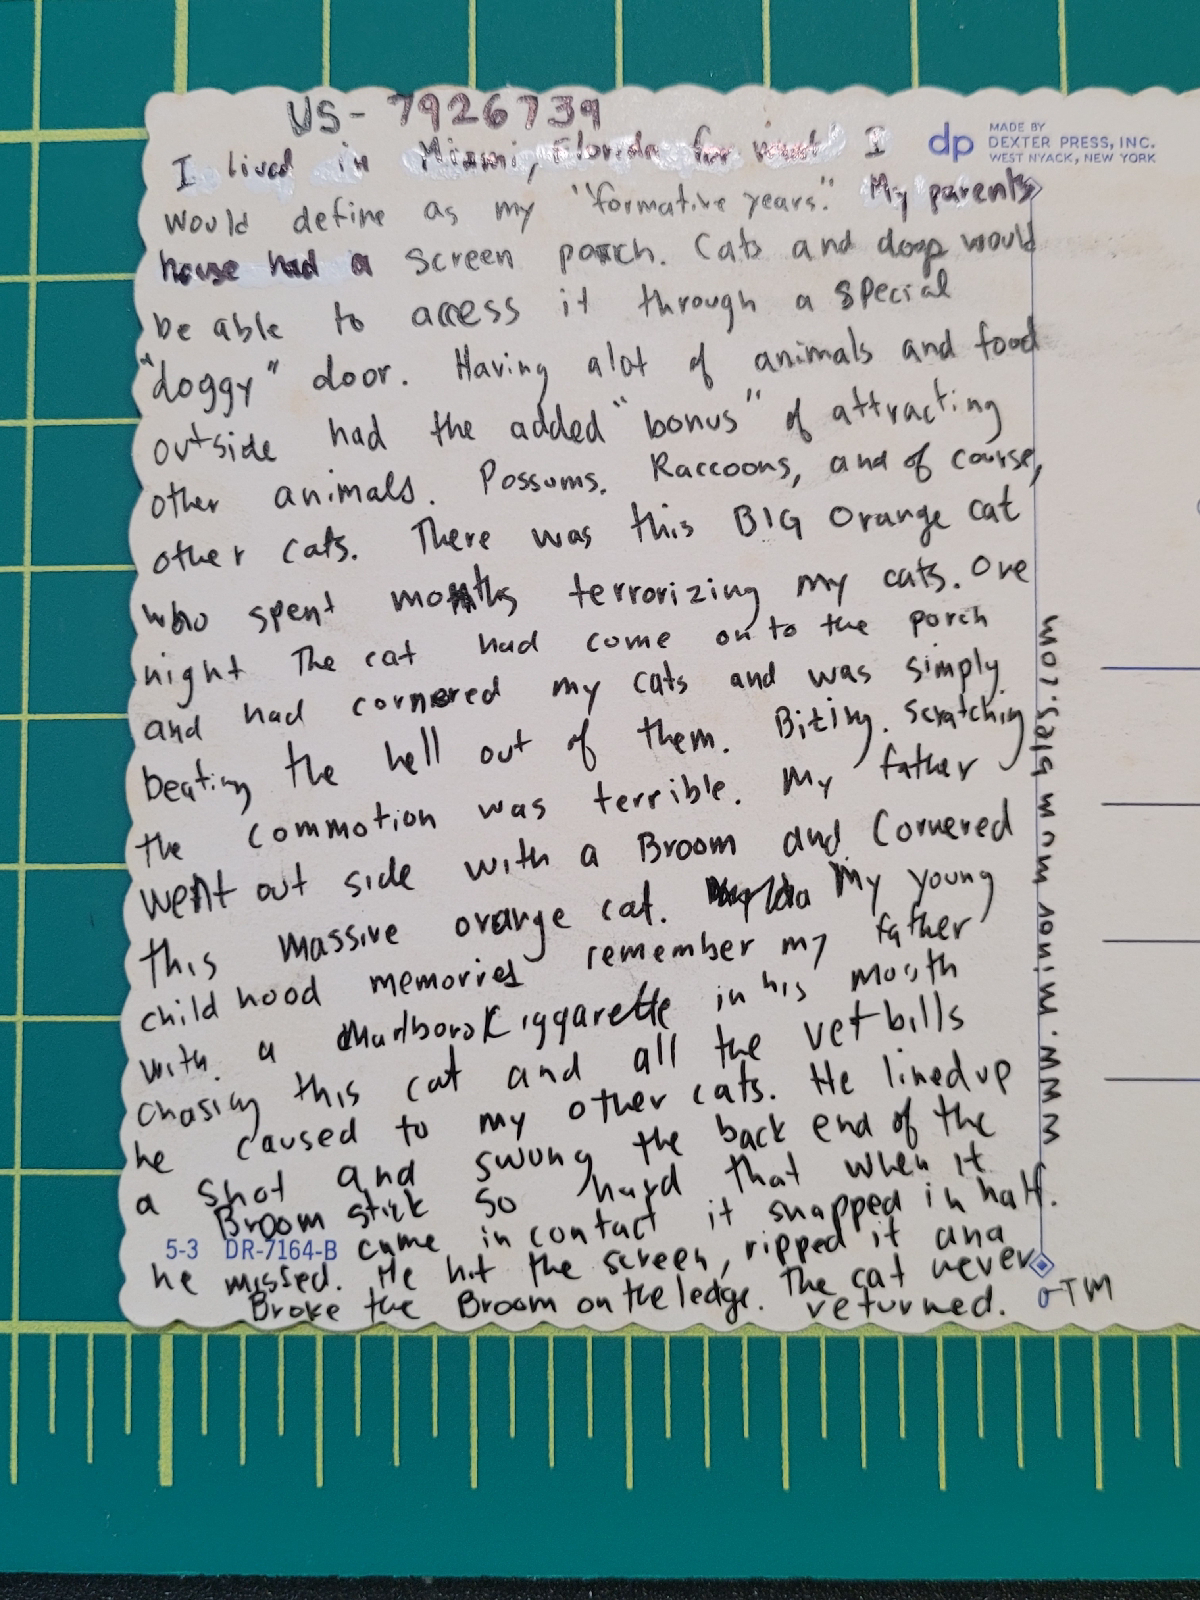 US-7926739
I lived in Miami, Florida for what I
would define as my "formative years." My parents
house had a screen porch. Cats and dogs would
be able to access it through a special
"doggy" door. Having alot of animals and food
outside had the added "bonus" of attracting
other animals. Possums. Raccoons, and of course,
other cats. There was this BIG orange cat
who spent months terrorizing my cats. One
night The cat had come on to the porch
and had cornered my cats and was simply
beating the hell out of them. Biting. Scratching
the commotion was terrible. My father
went out side with a Broom and Cornered
this massive orange cat. My young
child hood memories remember my father
with a Marlboro Ciggarette in his mouth
chasing this cat and all the vet bills
he caused to my other cats. He lined up
a shot and swung the back end of the
Broom stick so hard that when it
came in contact it snapped in half.
he missed. He hit the screen, ripped it and
Broke the Broom on the ledge. The cat never
returned.
5-3 DR-7164-B
dp MADE BY
DEXTER PRESS, INC.
WEST NYACK, NEW YORK
WWW.Minor Mum bles.com
TM